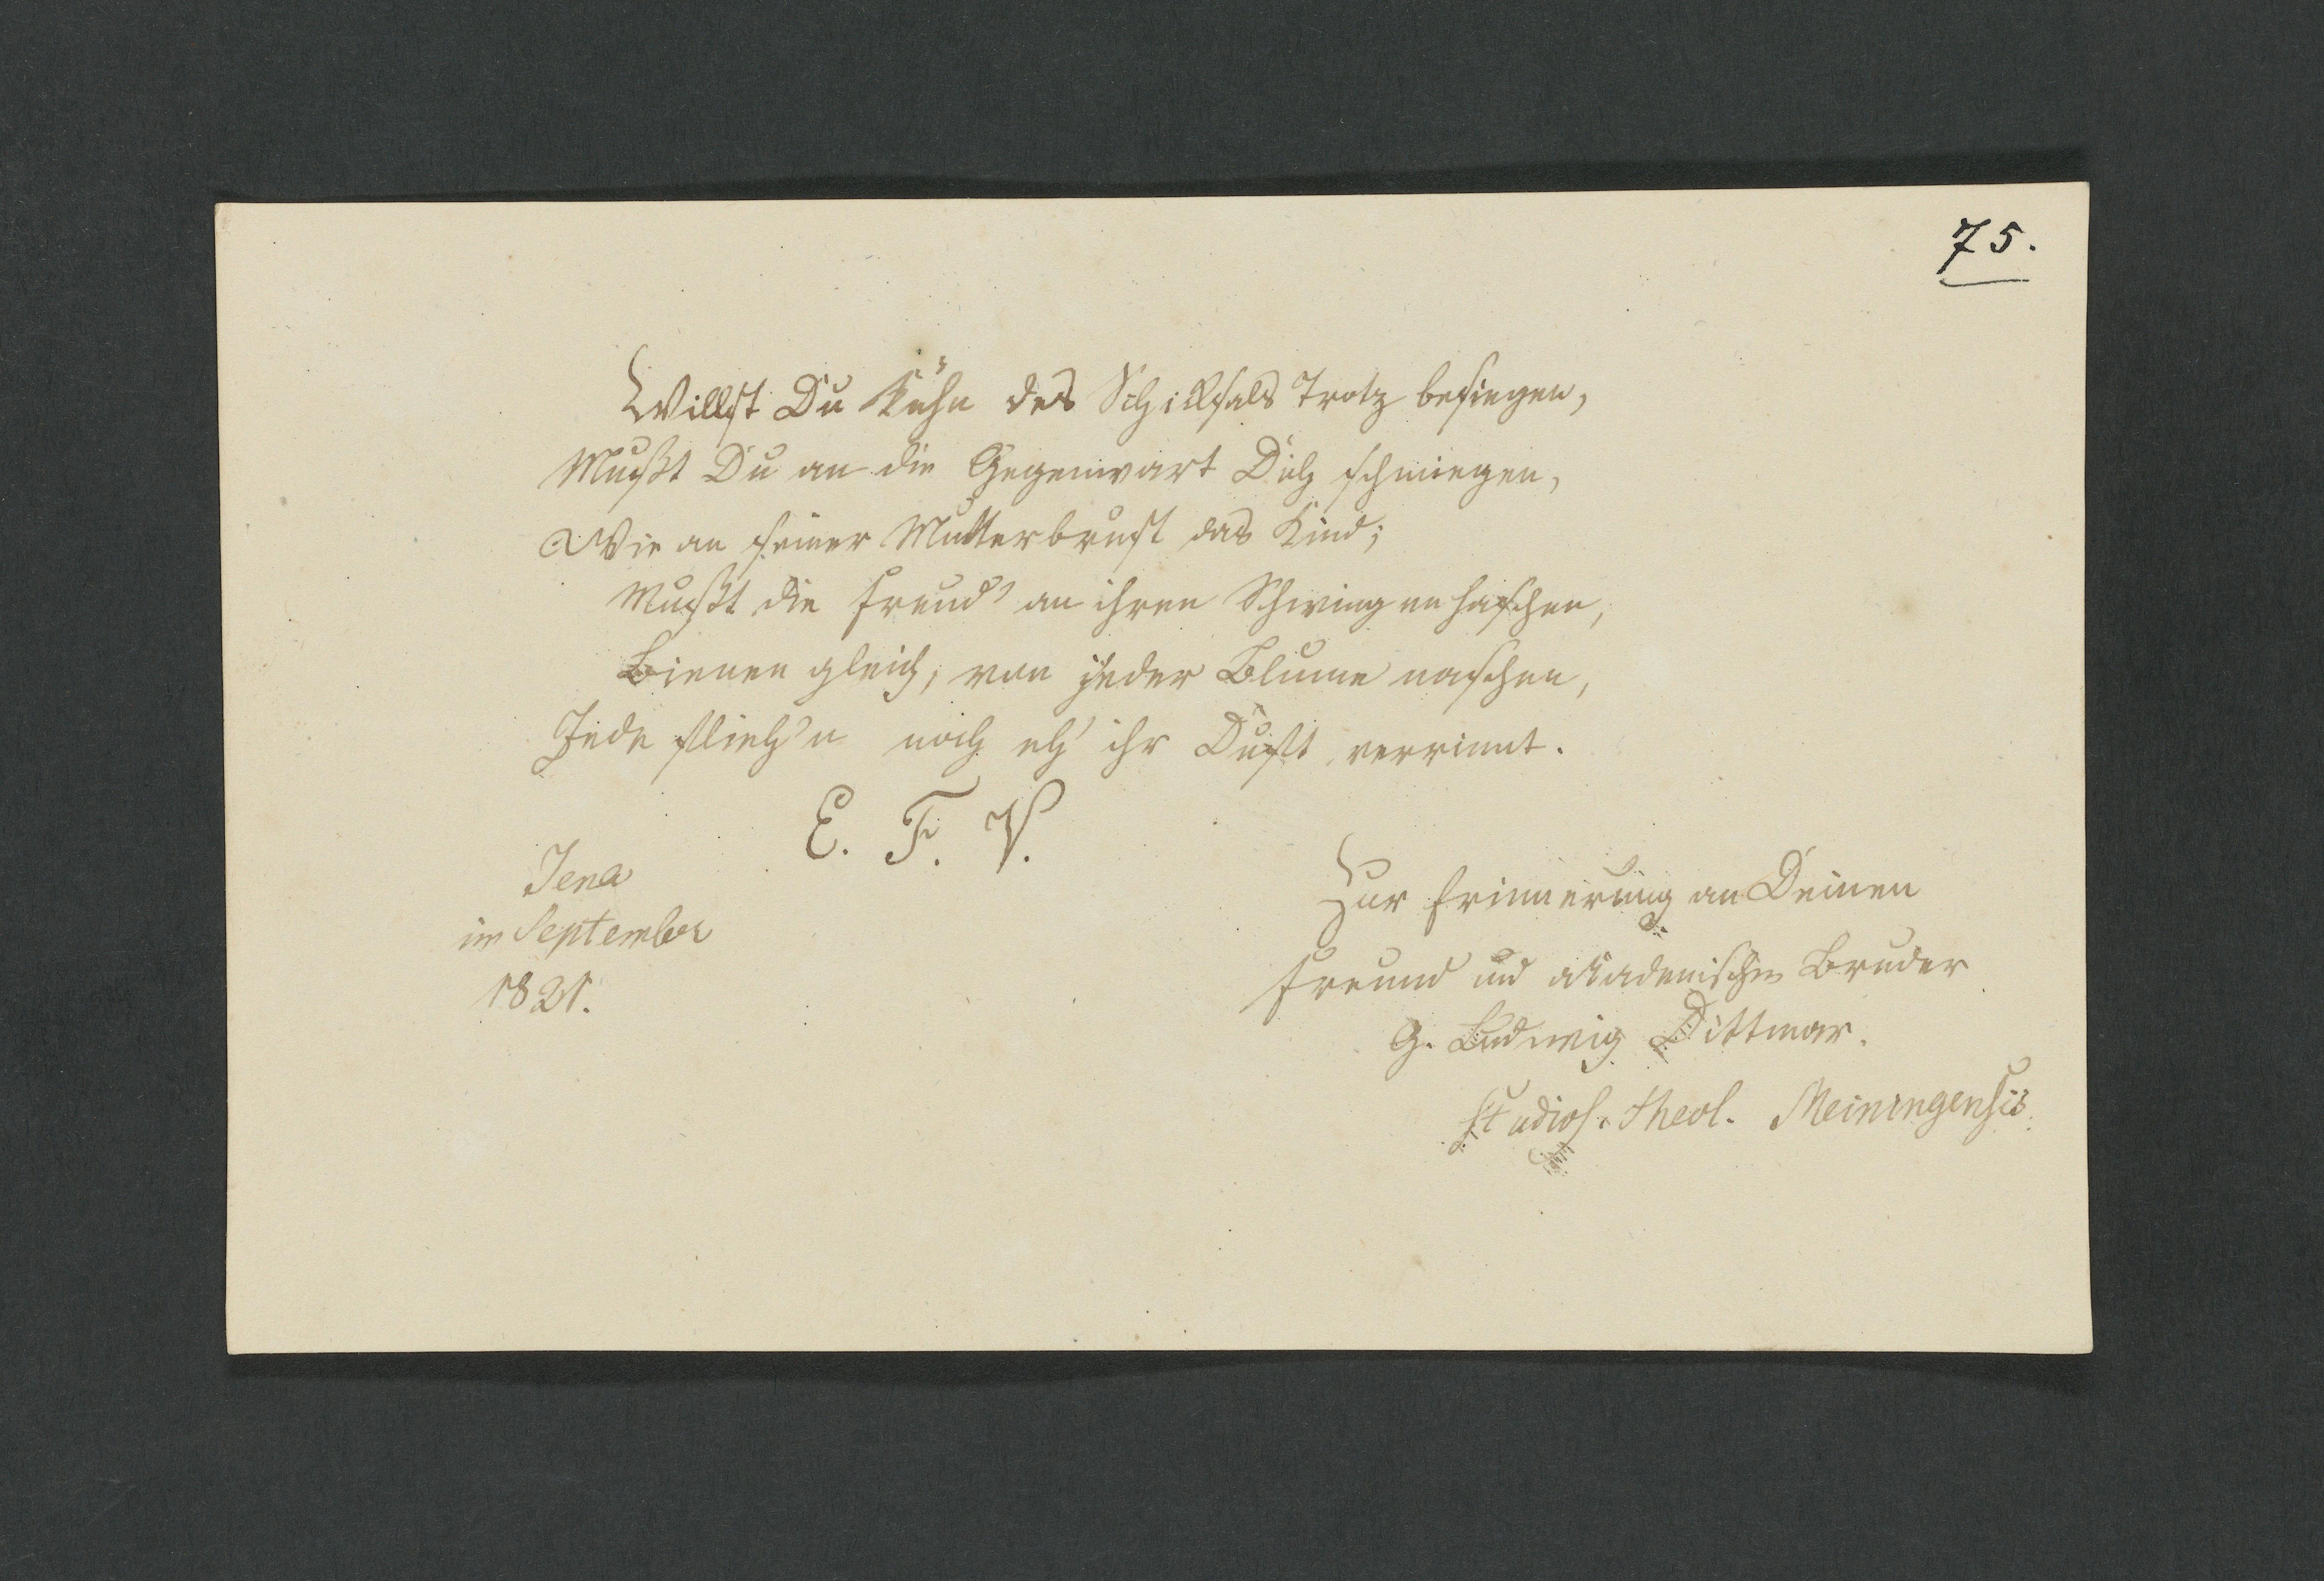 75.
Willst Du kühn des Schicksals Trotz besiegen,
Mußt Du an die Gegenwart Dich schmiegen,
Wie an seiner Mutterbrust das Kind;
Mußt die Freud' an ihren Schwingen haschen,
Bienen gleich, von jeder Blume naschen,
Jede flieh'n noch eh' ihr Duft verrinnt.
E. F. V.
Jena
im September
1821.
Zur Erinnerung an Deinen
Freund und akademischen Bruder
G. Ludwig Dittmar.
studios. theol. Meiningensis.